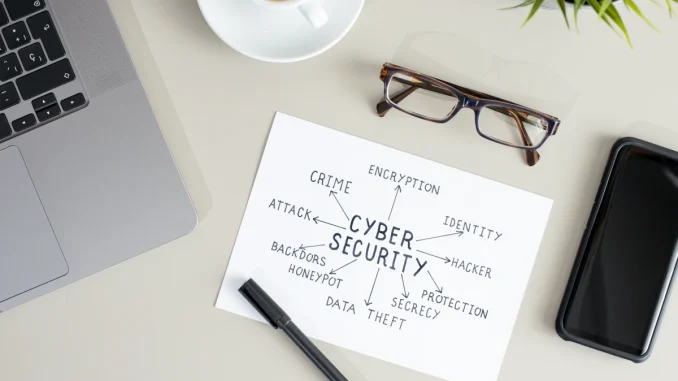 ENCRYPTION
CRIME
IDENTITY
ATTACK
CYBER
SECURITY
HACKER
BACKDORS
HONEYPOT
PROTECTION
SECRECY
DATA THEFT